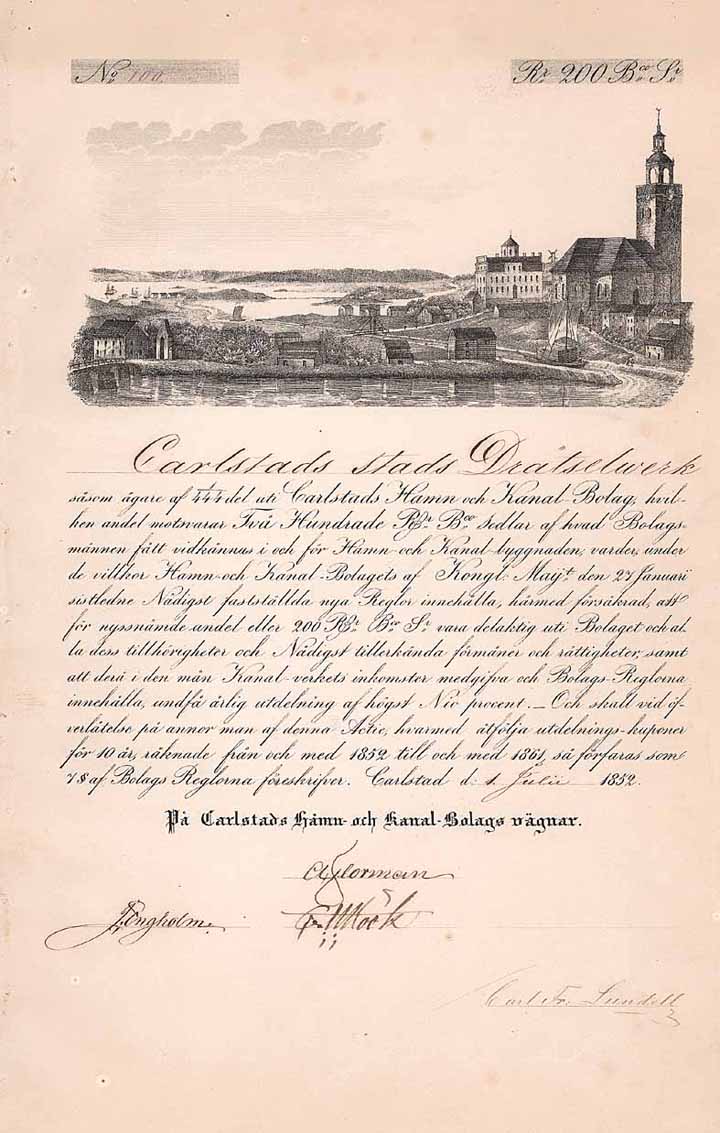 No 100
Rr 200 Bco Sr
Carlstads stads Drätselwerk
såsom ägare af 1/444 del uti Carlstads Hamn och Kanal-Bolag, hvil-
ken andel motsvarar Två Hundrade Rdr Bco Sedlar af hvad Bolags-
männen fått vidkännas i och för Hamn- och Kanal-byggnaden, varder, under
de villkor Hamn- och Kanal-Bolagets af Kongl: Maj:t den 27 Januari
sistledne Nådigst fastställda nya Reglor innehålla, härmed försäkrad, att
för nyssnämde andel eller 200 Rdr Bco Sr vara delaktig uti Bolaget och al-
la dess tillhörigheter och Nådigst tillerkända förmåner och rättigheter, samt
att derå i den mån Kanal-verkets inkomster medgifva och Bolags-Reglorna
innehålla, undfå årlig utdelning af högst Nio procent. — Och skall vid öf-
verlåtelse på annor man af denna Actie, hvarmed åtfölja utdelnings-kuponer
för 10 år, räknade från och med 1852 till och med 1861, så förfaras som
7 § af Bolags Reglorna föreskrifver. Carlstad d: 1 Julii 1852.
På Carlstads Hamn- och Kanal-Bolags vägnar.
Engholm
Carl Fr. Lundell